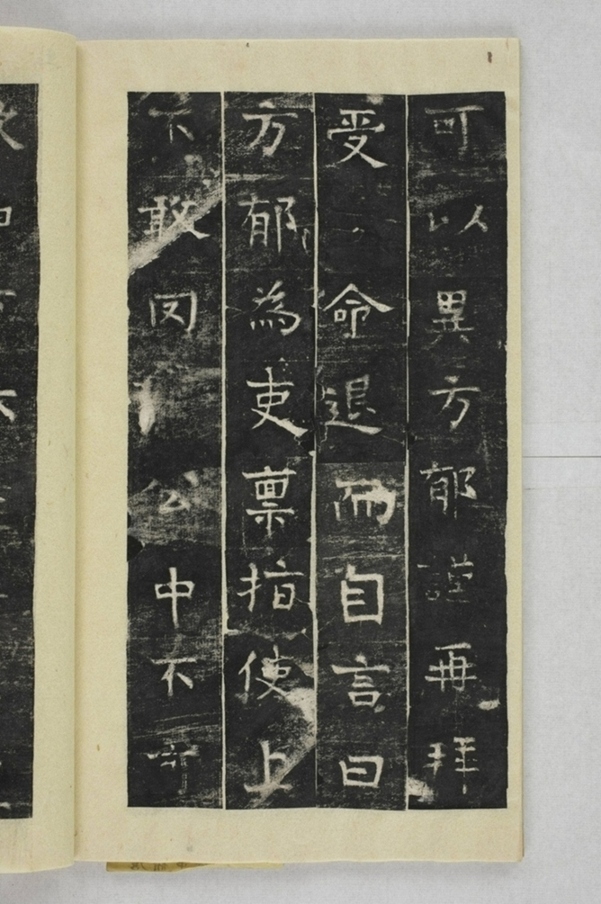 可以異方郁謹再拜
受命退而自言曰
方郁為吏禀指使上
不敢罔公中不